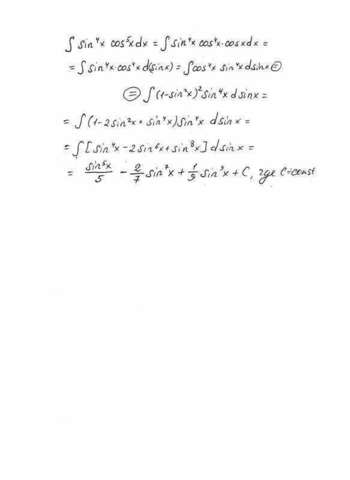 ∫ sin⁴x cos⁵x dx = ∫ sin⁴x cos⁴x · cosx dx =
= ∫ sin⁴x · cos⁴x d(sinx) = ∫ cos⁴x sin⁴x d sinx =
= ∫ (1-sin²x)² sin⁴x d sinx =
= ∫ (1-2sin²x + sin⁴x) sin⁴x d sinx =
= ∫ [sin⁴x - 2sin⁶x + sin⁸x] d sinx =
= sin⁵x/5 - 2/7 sin⁷x + 1/9 sin⁹x + C, где C=const